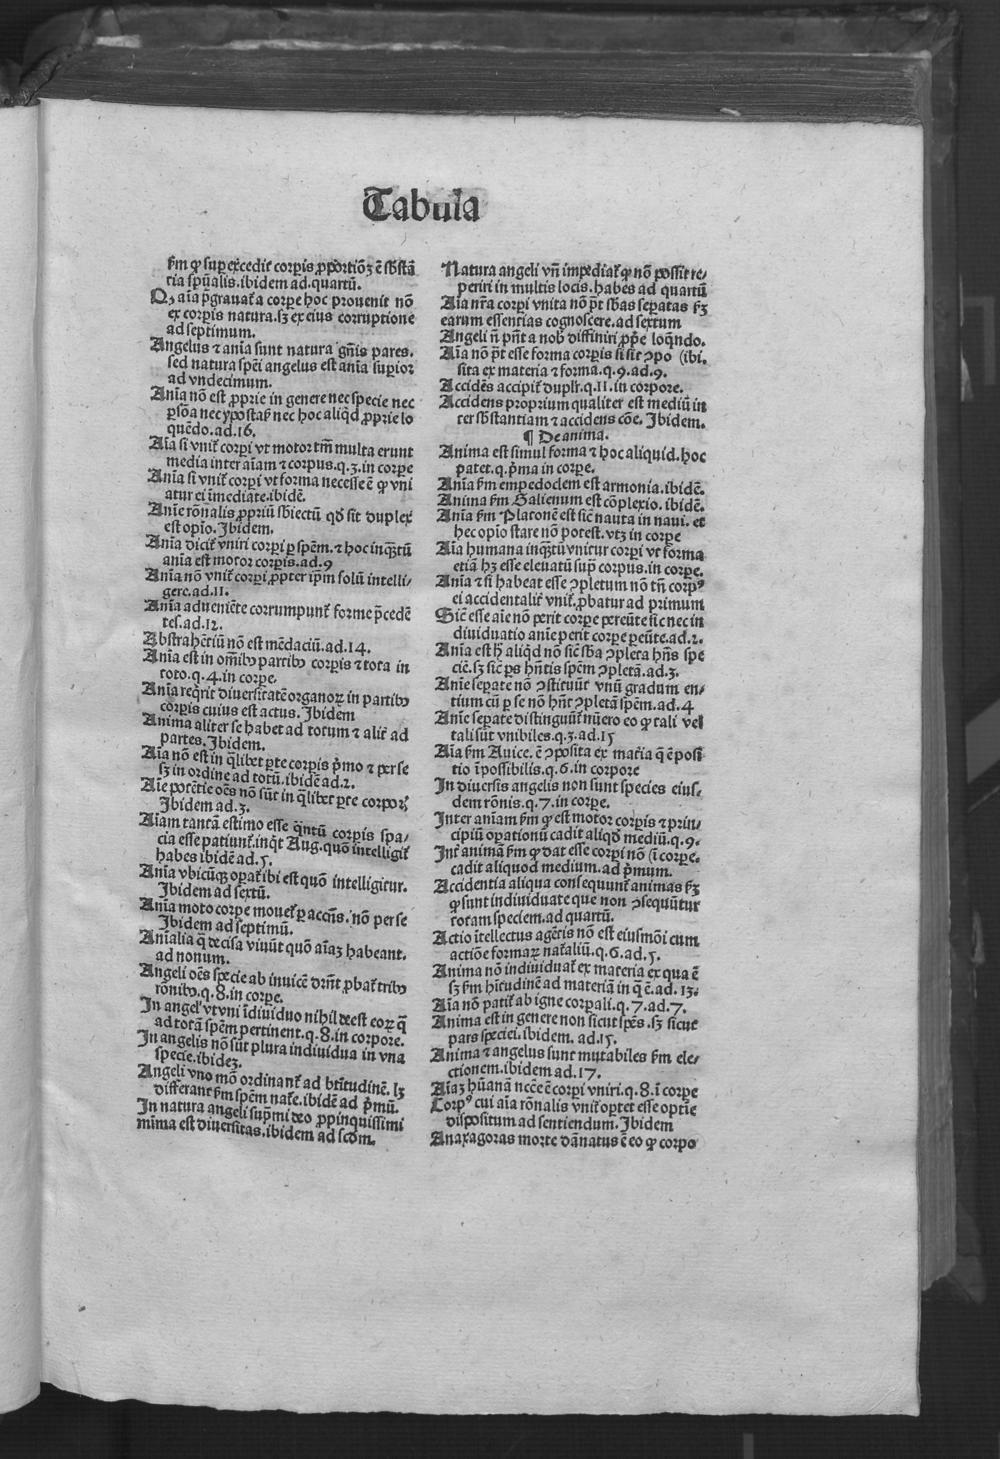 Tabula
s̄m ꝙ suꝑexcedit᷑ corꝑis ꝓportiōꝫ ē sb̄stā
tia spūalis. ibidem ad quartū.
Qꝫ aīa p̄grauat᷑ a corꝑe hoc prouenit nō
ex corꝑis natura. sꝫ ex eius corruptione
ad septimum.
Angelus ⁊ anīa sunt natura gn̄is pares.
sed natura spēi angelus est anīa suꝑior
ad vndecimum.
Anīa nō est ꝓprie in genere nec specie nec
ꝑsōa nec ypostaꝭ nec hoc aliqͥd ꝓprie lo
quēdo. ad .16.
Aīa si vnit᷑ corꝑi vt motor tm̄ multa erunt
media inter aīam ⁊ corpus. q.3. in corꝑe
Anīa si vnit᷑ corꝑi vt forma necesse ē ꝙ vni
atur ei īmediate. ibidē.
Anīe rōnalis ꝓpriū sb̄iectū qd̄ sit duplex
est opīo. Ibidem.
Anīa dicit᷑ vniri corꝑi ꝑ spēm. ⁊ hoc inqͣ̄tū
anīa est motor corꝑis. ad .9
Anīa nō vnit᷑ corꝑi ꝓpter ip̄m solū intelli⸗
gere. ad .11.
Anīa adueniēte corrumpunt᷑ forme p̄cedē
tes. ad .12.
Abstrahētiū nō est mēdaciū. ad .14.
Anīa est in om̄ibꝰ partibꝰ corꝑis ⁊ tota in
toto. q.4. in corꝑe.
Anīa reqͥrit diuersitatē organoꝝ in partibꝰ
corꝑis cuius est actus. Ibidem
Anima aliter se habet ad totum ⁊ alit᷑ ad
partes. Ibidem.
Aīa nō est in qͣlibet ꝑte corꝑis pͥmo ⁊ per se
sꝫ in ordine ad totū. ibidē ad .2.
Aīe potētie oēs nō sūt in qͣlibet ꝑte corpoꝝ
Ibidem ad .3.
Aīam tantā estimo esse qͣ̄ntū corꝑis spa⸗
cia esse patiunt᷑. inqͥt Aug. quō intelligit᷑
habes ibidē ad .5.
Anīa vbicūqꝫ oꝑat᷑ ibi est quō intelligitur.
Ibidem ad sextū.
Anīa moto corꝑe mouet᷑ ꝑ accn̄s. nō per se
Ibidem ad septimū.
Anīalia q̄ decisa viuūt quō aīaꝫ habeant.
ad nonum.
Angeli oēs specie ab inuicē dr̄nt ꝓbat᷑ tribꝰ
rōnibꝰ. q.8. in corꝑe.
In angelꝭ vt vni īdiuiduo nihil deest eoꝝ q̄
ad totā spēm pertinent. q.8. in corpore.
In angelis nō sūt plura indiuidua in vna
specie. ibideꝫ.
Angeli vno mō ordinant᷑ ad btītudinē. lꝫ
differant s̄m spēm nat᷑e. ibidē ad pͥmū.
In natura angeli supͥmi deo ꝓpinquissimi
mīma est diuersitas. ibidem ad scd̄m.
Natura angeli vn̄ impediat᷑ ꝙ nō possit re⸗
periri in multis locis. habes ad quartū
Aīa nr̄a corꝑi vnita nō p̄t sb̄as seꝑatas s̄ꝫ
earum essentias cognoscere. ad sextum
Angeli n̄ pn̄t a nob̄ diffiniri ꝓpͥe loqn̄do.
Aīa nō p̄t esse forma corꝑis si sit ↄpo (ibi.
sita ex materia ⁊ forma. q.9. ad .9.
Accidēs accipit᷑ duplr᷑. q.11. in corpore.
Accidens proprium qualiter est mediū in
ter sb̄stantiam ⁊ accidens cōe. Ibidem.
¶ De anima.
Anima est simul forma ⁊ hoc aliquid. hoc
patet. q. pͥma in corꝑe.
Anīa s̄m empedoclem est armonia. ibidē.
Anima s̄m Galienum est cōplexio. ibidē.
Anīa s̄m Platonē est sic̄ nauta in naui. et
hec opīo stare nō potest. vtꝫ in corꝑe
Aīa humana inqͣ̄tū vnitur corꝑi vt forma
etiā hꝫ esse eleuatū supͣ corpus. in corꝑe.
Anīa ⁊ si habeat esse ↄpletum nō tn̄ corpꝰ
ei accidentalit᷑ vnit᷑. ꝓbatur ad primum
Sic̄ esse aīe nō ꝑit corꝑe pereūte sic nec in
diuiduatio anīe perit corꝑe ꝑeūte. ad .2.
Anīa est hͦ aliqͥd nō sic̄ sb̄a ↄpleta hn̄s spe
ciē. sꝫ sic̄ ꝑs hn̄tis spēm ↄpletā. ad .3.
Anīe seꝑate nō ↄstituūt vnū gradum en⸗
tium cū ꝑ se nō hn̄t ↄpletā spēm. ad .4
Anīe seꝑate distinguūt᷑ nūero eo ꝙ tali vel
tali sūt vnibiles. q.3. ad .15
Aīa s̄m Auice. ē ↄposita ex mat᷑ia q̄ ē posi
tio īpossibilis. q.6. in corpore
In diuersis angelis non sunt species eius⸗
dem rōnis. q.7. in corꝑe.
Inter aniam s̄m ꝙ est motor corꝑis ⁊ prin⸗
cipiū oꝑationū cadit aliqd̄ mediū. q.9.
Int᷑ animā s̄m ꝙ dat esse corꝑi nō (ī corꝑe.
cadit aliquod medium. ad pͥmum.
Accidentia aliqua consequunt᷑ animas s̄ꝫ
ꝙ sunt indiuiduate que non ↄsequūtur
totam speciem. ad quartū.
Actio ītellectus agētis nō est eiusmōi cum
actiōe formaꝝ nat᷑aliū. q.6. ad .5.
Anima nō indiuiduat᷑ ex materia ex qua ē
sꝫ s̄m hītudinē ad materiā in q̄ ē. ad .13.
Aīa nō patit᷑ ab igne corꝑali. q.7. ad .7.
Anima est in genere non sicut spēs. sꝫ sicut
pars speciei. ibidem. ad .15.
Anima ⁊ angelus sunt mutabiles s̄m ele⸗
ctionem. ibidem ad .17.
Aīaꝫ hūanā nccē ē corꝑi vniri. q.8. ī corꝑe
Corpꝰ cui aīa rōnalis vnit᷑ oꝑtet esse optīe
dispositum ad sentiendum. Ibidem
Anaxagoras morte dānatus ē eo ꝙ corpo